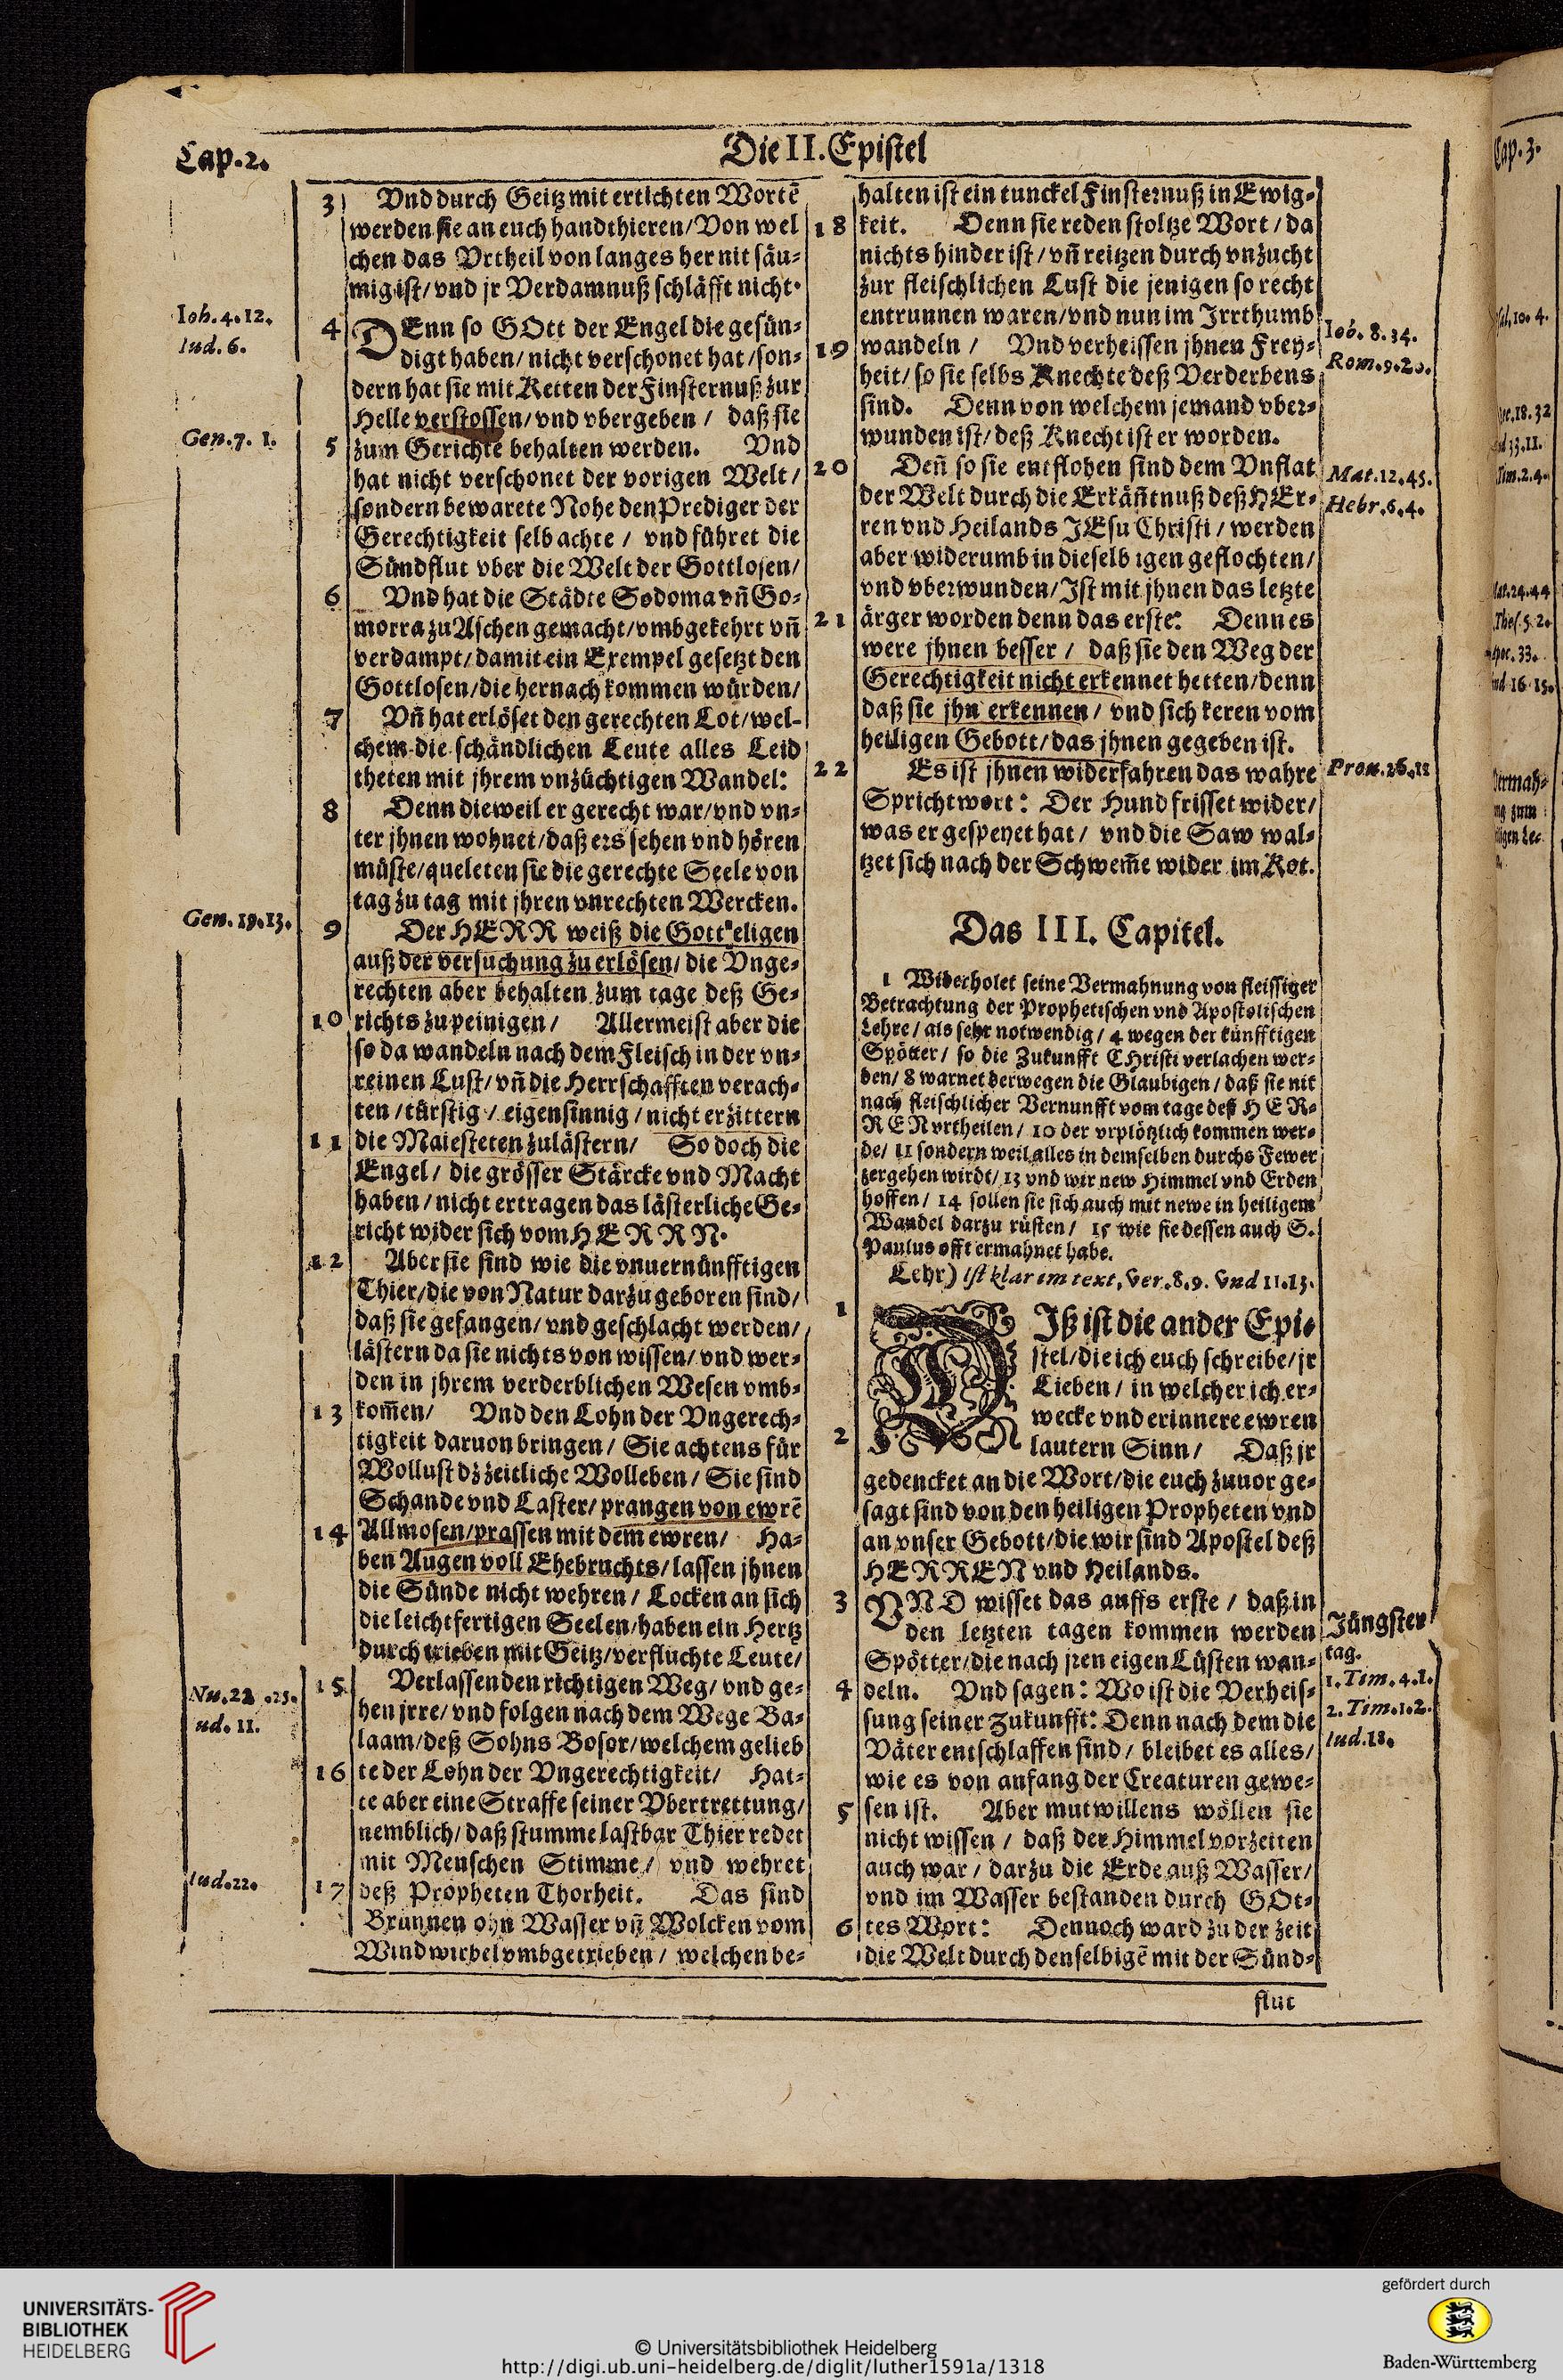 Cap. 2.
Die II. Epistel
3 Vnd durch Geitz mit ertichten Wortē
werden sie an euch handthieren/ Von wel
chen das Vrtheil von langes her nit säu-
mig ist/ vnd jr Verdamnuß schläfft nicht.
Ioh. 4. 12.
Iud. 6.
4 DEnn so GOtt der Engel die gesün-
digt haben/ nicht verschonet hat/ son-
dern hat sie mit Ketten der Finsternuß zur
Helle verstossen/ vnd vbergeben/ daß sie
Gen. 7. 1.
5 zum Gerichte behalten werden. Vnd
hat nicht verschonet der vorigen Welt/
sondern bewarete Nohe den Prediger der
Gerechtigkeit selb achte/ vnd führet die
Sündflut vber die Welt der Gottlosen/
6 Vnd hat die Städte Sodoma vñ Go-
morra zu Aschen gemacht/ vmbgekehrt vñ
verdampt/ damit ein Exempel gesetzt den
Gottlosen/ die hernach kommen würden/
7 Vñ hat erlöset den gerechten Lot/ wel-
chem die schändlichen Leute alles Leid
theten mit jhrem vnzüchtigen Wandel:
8 Denn dieweil er gerecht war/ vnd vn-
ter jhnen wohnet/ daß ers sehen vnd hören
müste/ queleten sie die gerechte Seele von
tag zu tag mit jhren vnrechten Wercken.
Gen. 19. 13.
9 Der HERR weiß die Gottseligen
auß der versuchung zu erlösen/ die Vnge-
rechten aber behalten zum tage deß Ge-
10 richts zu peinigen/ Allermeist aber die
so da wandeln nach dem Fleisch in der vn-
reinen Lust/ vñ die Herrschafften verach-
ten/ türstig/ eigensinnig/ nicht erzittern
11 die Maiesteten zu lästern/ So doch die
Engel/ die grösser Stärcke vnd Macht
haben/ nicht ertragen das lästerliche Ge-
richt wider sich vom HERRN.
12 Aber sie sind wie die vnuernünfftigen
Thier/ die von Natur darzu geboren sind/
daß sie gefangen/ vnd geschlacht werden/
lästern da sie nichts von wissen/ vnd wer-
den in jhrem verderblichen Wesen vmb-
13 kom̄en/ Vnd den Lohn der Vngerech-
tigkeit daruon bringen/ Sie achtens für
Wollust dz zeitliche Wolleben/ Sie sind
Schande vnd Laster/ prangen von ewrē
14 Allmosen/ prassen mit dem ewren/ Ha-
ben Augen voll Ehebruchts/ lassen jhnen
die Sünde nicht wehren/ Locken an sich
die leichtfertigen Seelen/ haben ein Hertz
durchtrieben mit Geitz/ verfluchte Leute/
Nu. 22 .25.
ud. 11.
15 Verlassen den richtigen Weg/ vnd ge-
hen jrre/ vnd folgen nach dem Wege Ba-
laam/ deß Sohns Bosor/ welchem gelieb
16 te der Lohn der Vngerechtigkeit/ Hat-
te aber eine Straffe seiner Vbertrettung/
nemblich/ daß stumme lastbar Thier redet
mit Menschen Stimme/ vnd wehret
Iud. 22.
17 deß Propheten Thorheit. Das sind
Brunnen ohn Wasser vñ Wolcken vom
Windwirbel vmbgetrieben/ welchen be-
halten ist ein tunckel Finsternuß in Ewig-
18 keit. Denn sie reden stoltze Wort/ da
nichts hinder ist/ vñ reitzen durch vnzucht
zur fleischlichen Lust die jenigen so recht
entrunnen waren/ vnd nun im Irrthumb
Ioh. 8. 34.
Rom. 9. 20.
19 wandeln/ Vnd verheissen jhnen Frey-
heit/ so sie selbs Knechte deß Verderbens
sind. Denn von welchem jemand vber-
wunden ist/ deß Knecht ist er worden.
20 Deñ so sie entflohen sind dem Vnflat
Mat. 12. 45.
Hebr. 6. 4.
der Welt durch die Erkäñtnuß deß HEr-
ren vnd Heilands JEsu Christi/ werden
aber widerumb in dieselbigen geflochten/
vnd vberwunden/ Ist mit jhnen das letzte
21 ärger worden denn das erste: Denn es
were jhnen besser/ daß sie den Weg der
Gerechtigkeit nicht erkennet hetten/ denn
daß sie jhn erkennen/ vnd sich keren vom
heiligen Gebott/ das jhnen gegeben ist.
22 Es ist jhnen widerfahren das wahre
Prou. 26. 11
Sprichtwort: Der Hund frisset wider/
was er gespeyet hat/ vnd die Saw wal-
tzet sich nach der Schwem̄e wider im Kot.
Das III. Capitel.
1 Widerholet seine Vermahnung von fleissiger
Betrachtung der Prophetischen vnd Apostolischen
Lehre/ als sehr notwendig/ 4 wegen der künfftigen
Spötter/ so die Zukunfft CHristi verlachen wer-
den/ 8 warnet derwegen die Glaubigen/ daß sie nit
nach fleischlicher Vernunfft vom tage deß HER-
REN vrtheilen/ 10 der vrplötzlich kommen wer-
de/ 11 sondern weil alles in demselben durchs Fewer
zergehen wirdt/ 13 vnd wir new Himmel vnd Erden
hoffen/ 14 sollen sie sich auch mit newe in heiligem
Wandel darzu rüsten/ 15 wie sie dessen auch S.
Paulus offt ermahnet habe.
Lehr) ist klar im text, ver. 8. 9. vnd 11. 13.
1 DIß ist die ander Epi-
stel/ die ich euch schreibe/ jr
Lieben/ in welcher ich er-
wecke vnd erinnere ewren
2 lautern Sinn/ Daß jr
gedencket an die Wort/ die euch zuuor ge-
sagt sind von den heiligen Propheten vnd
an vnser Gebott/ die wir sind Apostel deß
HERREN vnd Heilands.
3 VND wisset das auffs erste/ daß in
den letzten tagen kommen werden
Jüngster
tag.
1. Tim. 4. 1.
2. Tim. 1. 2.
Iud. 18.
Spötter/ die nach jren eigen Lüsten wan-
4 deln. Vnd sagen: Wo ist die Verheis-
sung seiner Zukunfft: Denn nach dem die
Väter entschlaffen sind/ bleibet es alles/
wie es von anfang der Creaturen gewe-
5 sen ist. Aber mutwillens wöllen sie
nicht wissen/ daß der Himmel vorzeiten
auch war/ darzu die Erde auß Wasser/
vnd im Wasser bestanden durch GOt-
6 tes Wort: Dennoch ward zu der zeit
die Welt durch denselbigē mit der Sünd-
flut
Cap. 3.
UNIVERSITÄTS-
BIBLIOTHEK
HEIDELBERG
© Universitätsbibliothek Heidelberg
http://digi.ub.uni-heidelberg.de/diglit/luther1591a/1318
gefördert durch
Baden-Württemberg